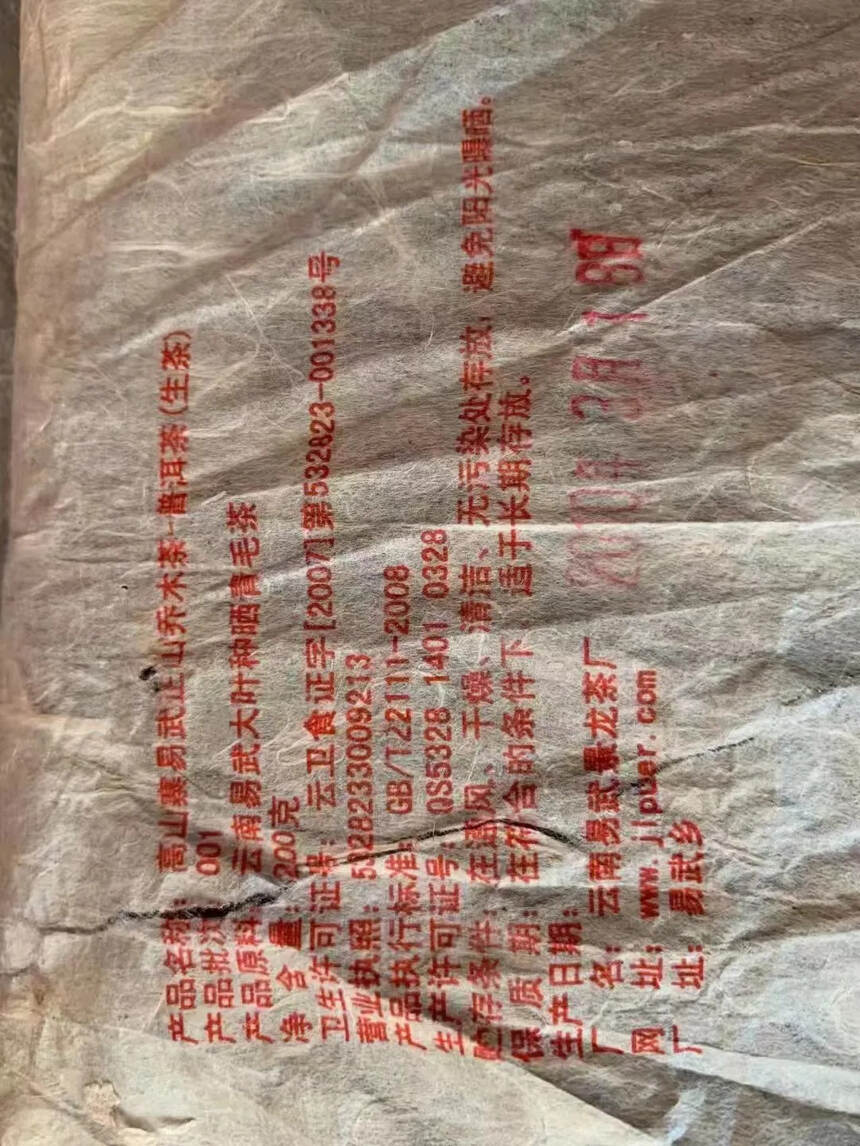 产品名称：高山寨易武正山乔木茶-普洱茶(生茶)
产品批次：001
产品原料：云南易武大叶种晒青毛茶
净含量：200克
卫生许可证号：云卫食证字[2007]第532823-001338号
营业执照：5328233009213
产品执行标准：GB/T22111-2008
生产许可证号：QS5328 1401 0328
贮存条件：在通风、干燥、清洁、无污染处存放，避免阳光曝晒。
保质期：在符合的条件下，适于长期存放。
生产日期：2010年3月18日
厂名：云南易武景龙茶厂
网址：www.jlpuer.com
厂址：易武乡